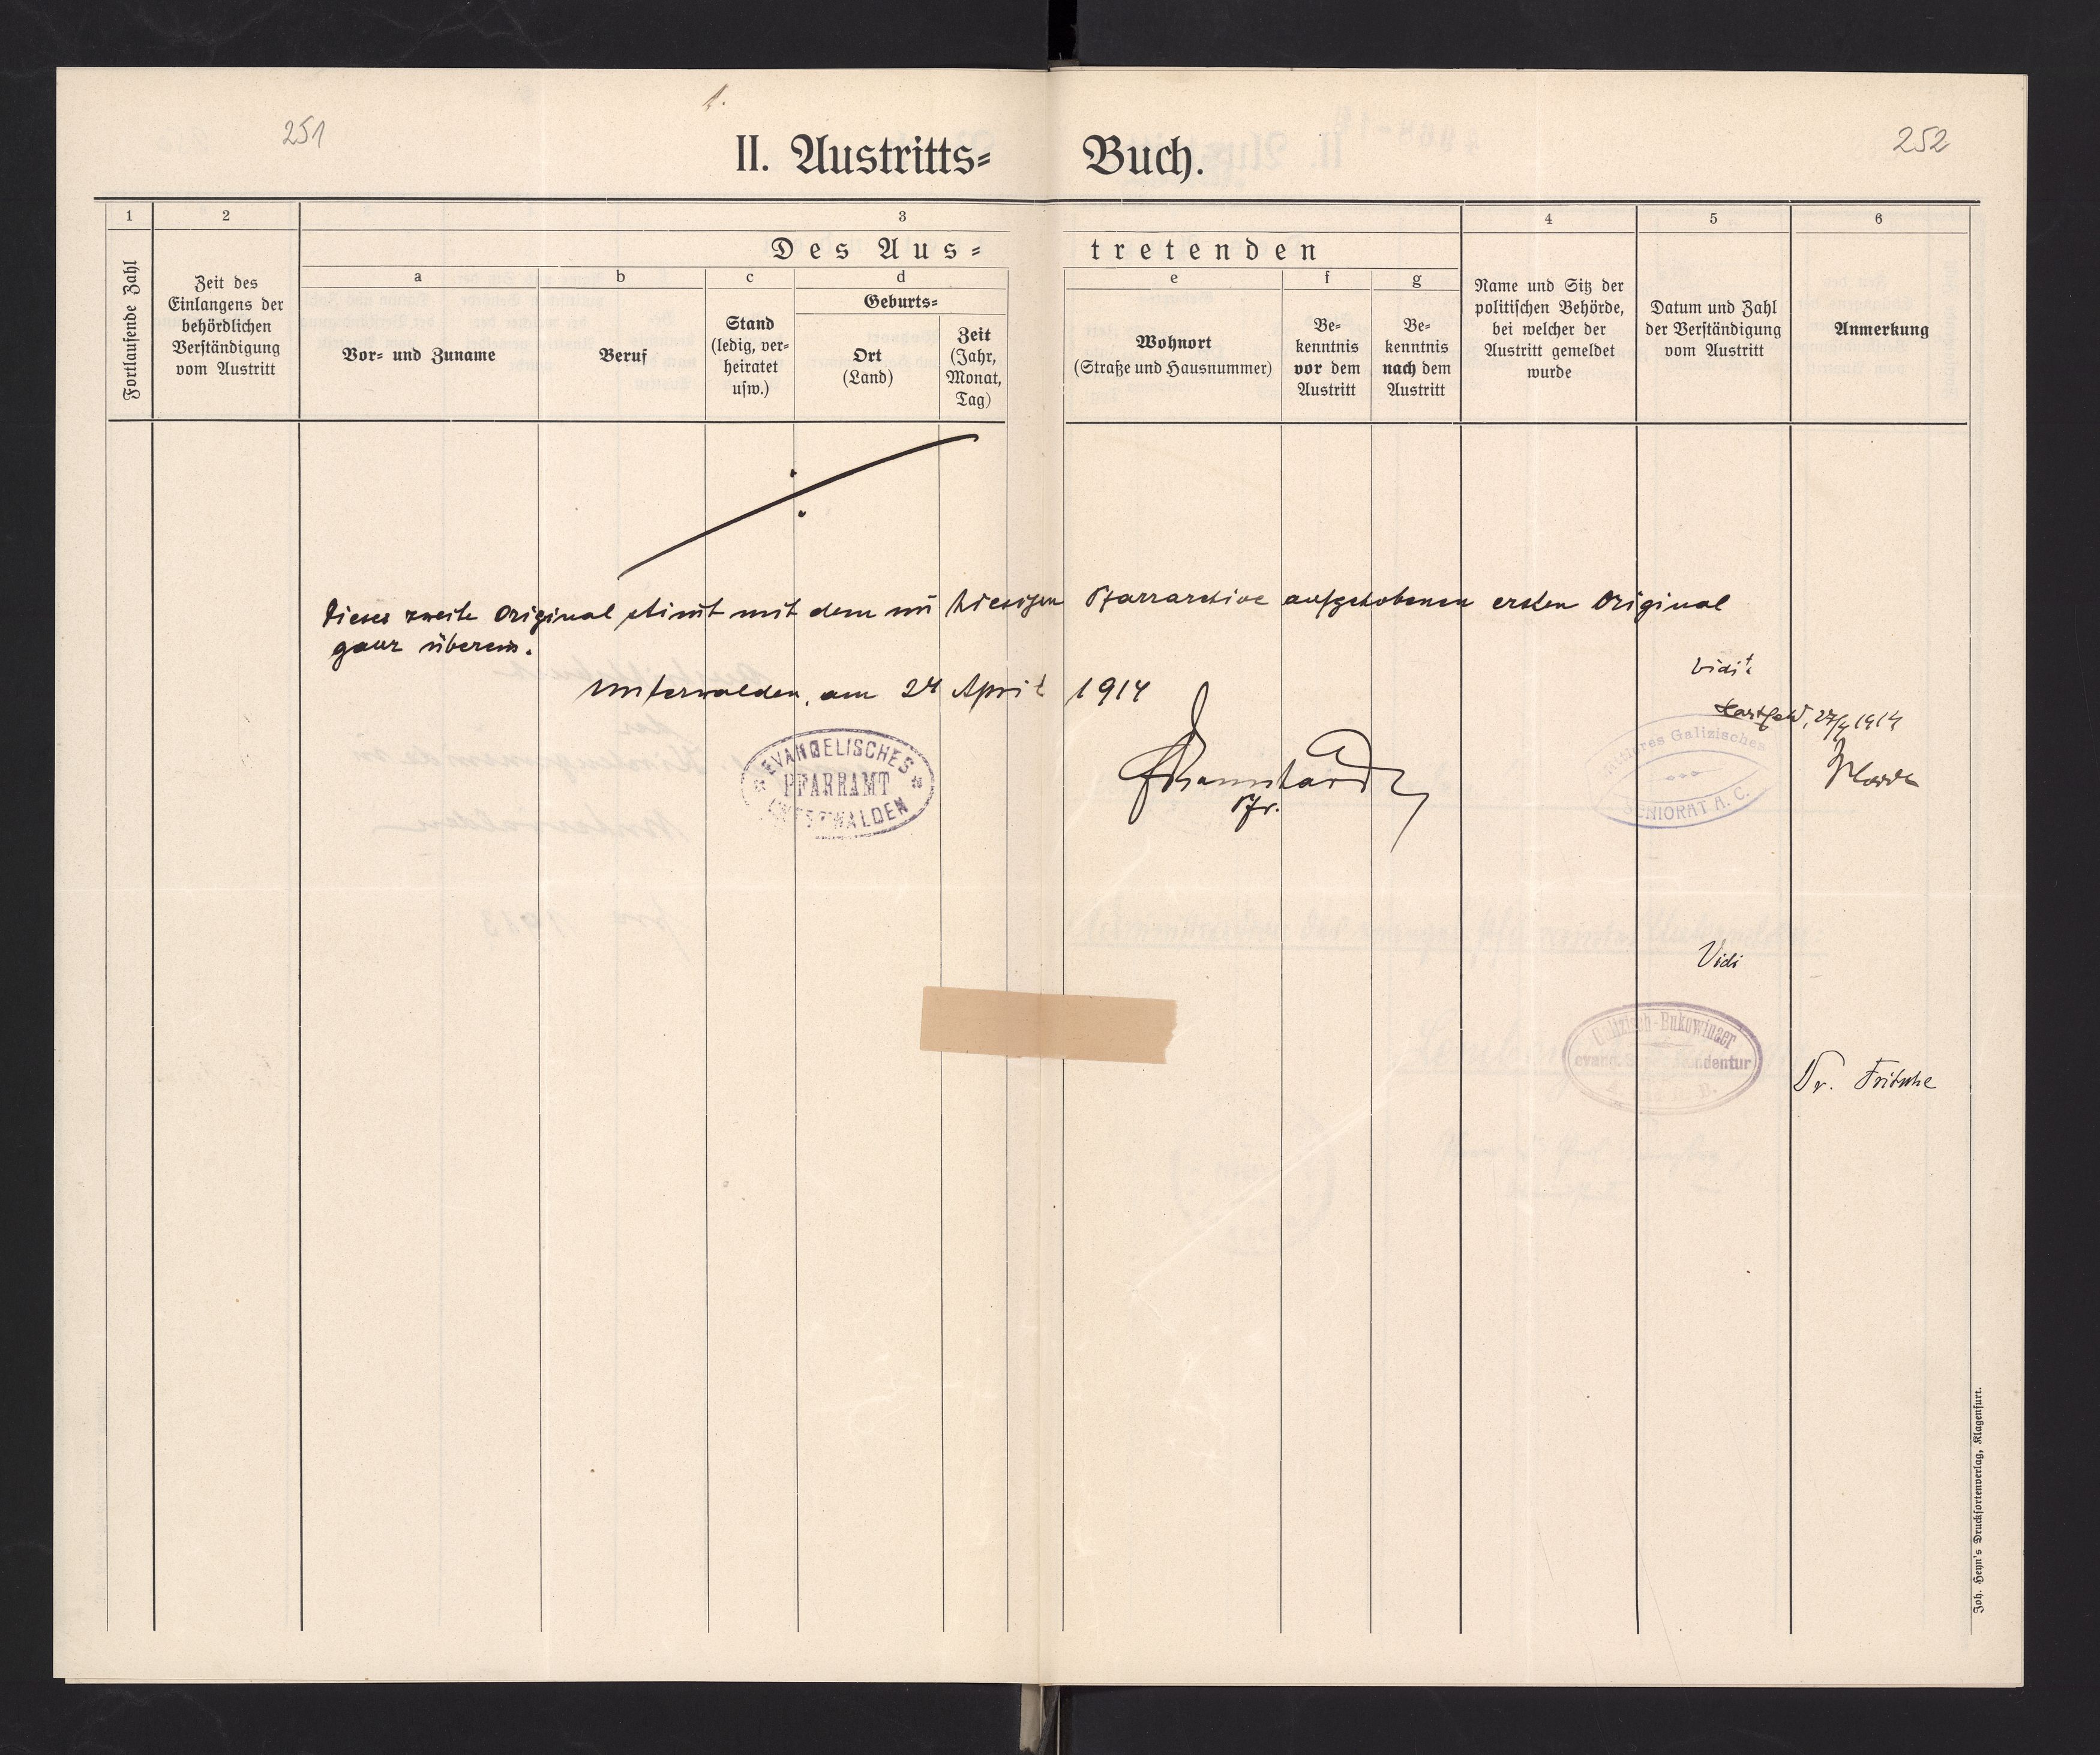 1.
251
252
II. Austritts- Buch.
1 2 3 4 5 6
Des Aus- tretenden
a b c d e f g
Fortlaufende Zahl
Zeit des
Einlangens der
behördlichen
Verständigung
vom Austritt
Vor- und Zuname
Beruf
Stand
(ledig, ver-
heiratet
usw.)
Geburts-
Ort
(Land)
Zeit
(Jahr,
Monat,
Tag)
Wohnort
(Straße und Hausnummer)
Be-
kenntnis
vor dem
Austritt
Be-
kenntnis
nach dem
Austritt
Name und Sitz der
politischen Behörde,
bei welcher der
Austritt gemeldet
wurde
Datum und Zahl
der Verständigung
vom Austritt
Anmerkung
Dieses zweite Original stimt mit dem im hiesigen Pfarrarchive aufgehobenen ersten Original
ganz überein.
Unterwalden, am 24 April 1914
vidit
27/4 1914
EVANGELISCHES
PFARRAMT
UNTERWALDEN
Pfr.
Mittleres Galizisches
SENIORAT A. C.
Vidi
Galizisch-Bukowinaer
evang. Superintendentur
Dr. Fritsche
Joh. Heyn's Drucksortenverlag, Klagenfurt.